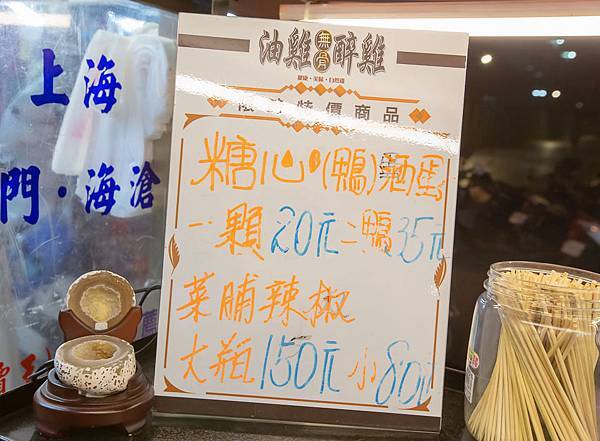 油雞 無骨 醉雞
健康・美味・自然雞
限時特價商品
糖心(鴨)滷蛋
一顆20元二顆35元
菜脯辣椒
大瓶150元小80元
上海
門・海滄